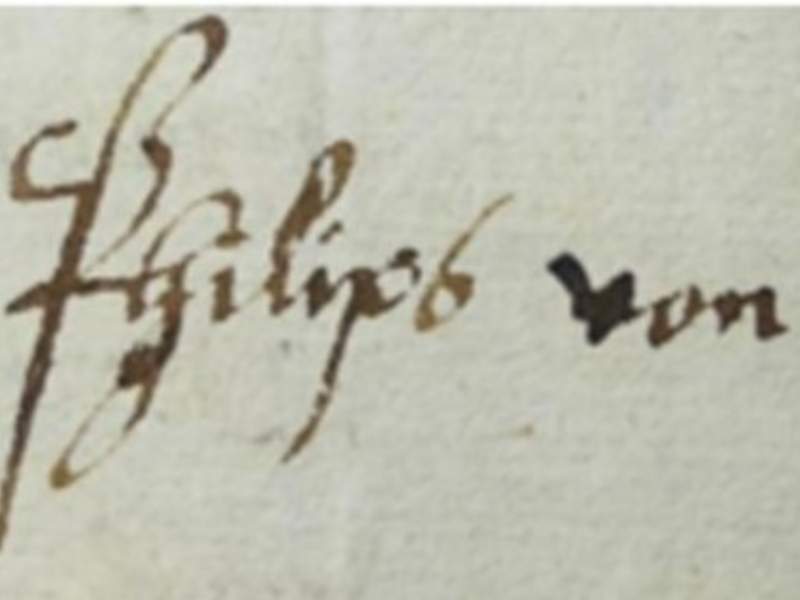 Philips von